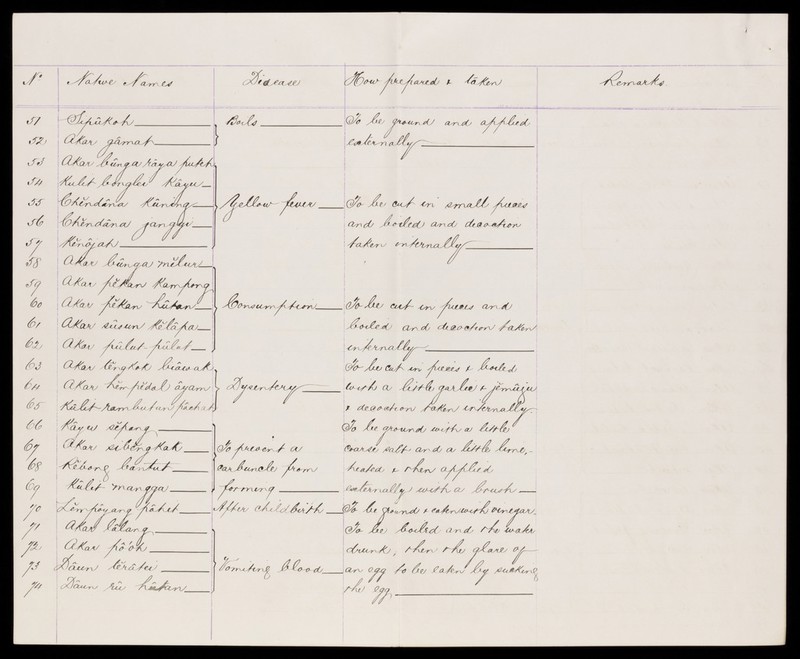 No Native Names Disease How prepared & taken Remarks
51 Sipŭkoh Boils To be ground and applied
52 Akar gâmat externally
53 Akar bûnga râya puteh
54 Kulit bonglei Kâyu
55 Chĕndâna Kûning Yellow fever To be cut in small pieces
56 Chĕndâna janggi and boiled and decoction
57 taken internally
58 Akar bûnga mĕlur
59 Akar pĕkan Kampong
60 Akar pĕkan hûtan Consumption To be cut in pieces and
61 Akar sûsun Kĕlâpa boiled and decoction taken
62 Akar pûlut-pûlut internally
63 Akar lĕngkok biâwak To be cut in pieces & boiled
64 Akar hĕmpĕdal âyam Dysentery with a little garlic & jĕmûju
65 Kûlit rambutan pâchat & decoction taken internally
66 Kâyu sĕpang To be ground with a little
67 Akar sibĕngkak To prevent a coarse salt and a little lime,
68 Rĕbong bantut carbuncle from heated & then applied
69 Kûlit mangga forming externally with a brush
70 Lĕmpôyang pâhet After childbirth To be ground & eaten with vinegar.
71 Akar lâlang To be boiled and the water
72 Akar pô'oh drunk, then the glare of
73 Dâun têrâtei Vomiting blood an egg to be eaten by sucking
74 Dâun rû hûtan the egg.